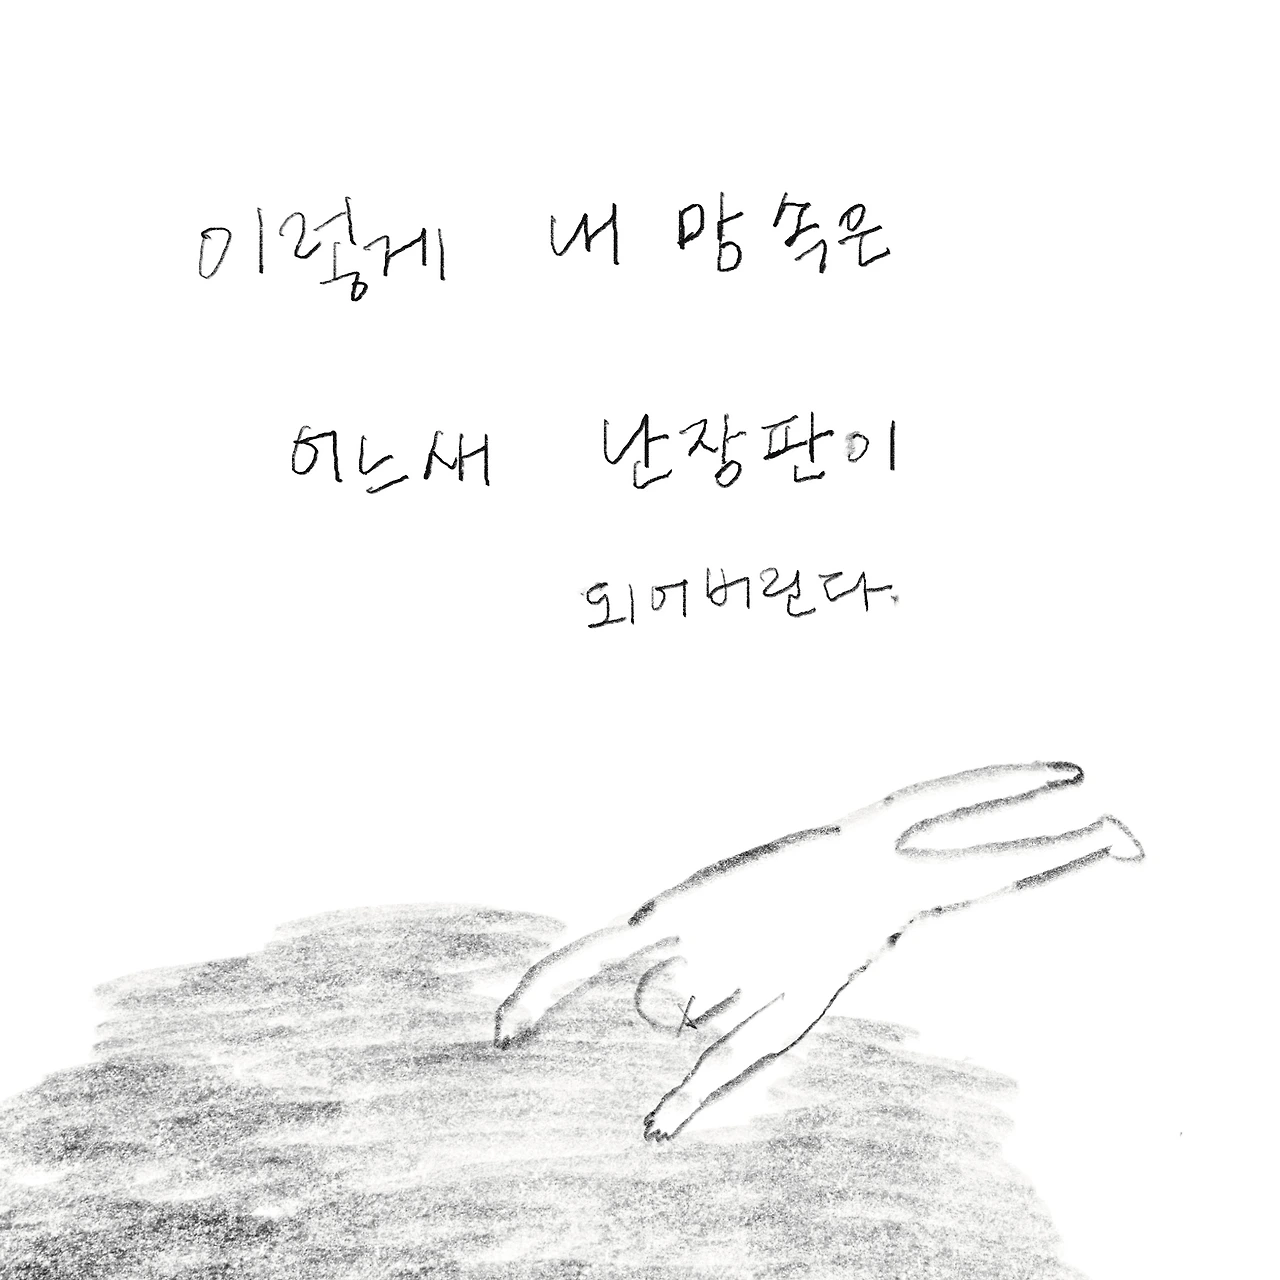 이렇게 내 맘 속은
어느새 난장판이
되어버린다.